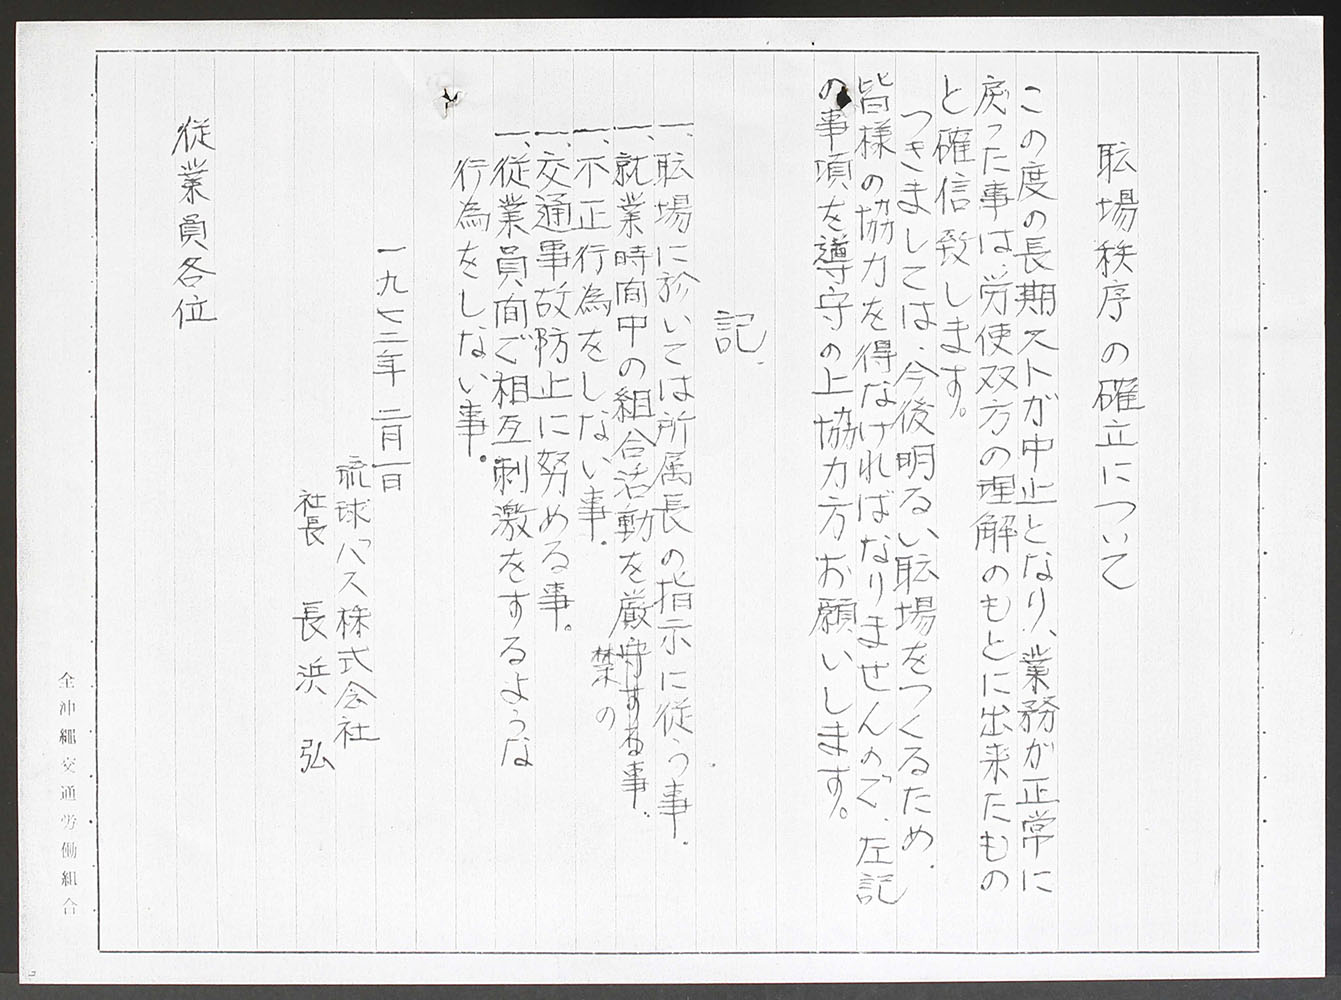 職場秩序の確立について
この度の長期ストが中止となり、業務が正常に
戻った事は、労使双方の理解のもとに出来たもの
と確信致します。
つきましては、今後明るい職場をつくるため、
皆様の協力を得なければなりませんので、左記
の事項を遵守の上協力方お願いします。
記、
一、職場に於いては所属長の指示に従う事。
一、就業時間中の組合活動を厳守する事。
禁の
一、不正行為をしない事。
一、交通事故防止に努める事。
一、従業員間で相互刺激をするような
行為をしない事。
一九七三年二月一日
琉球バス株式会社
社長 長浜弘
従業員各位
全沖縄交通労働組合